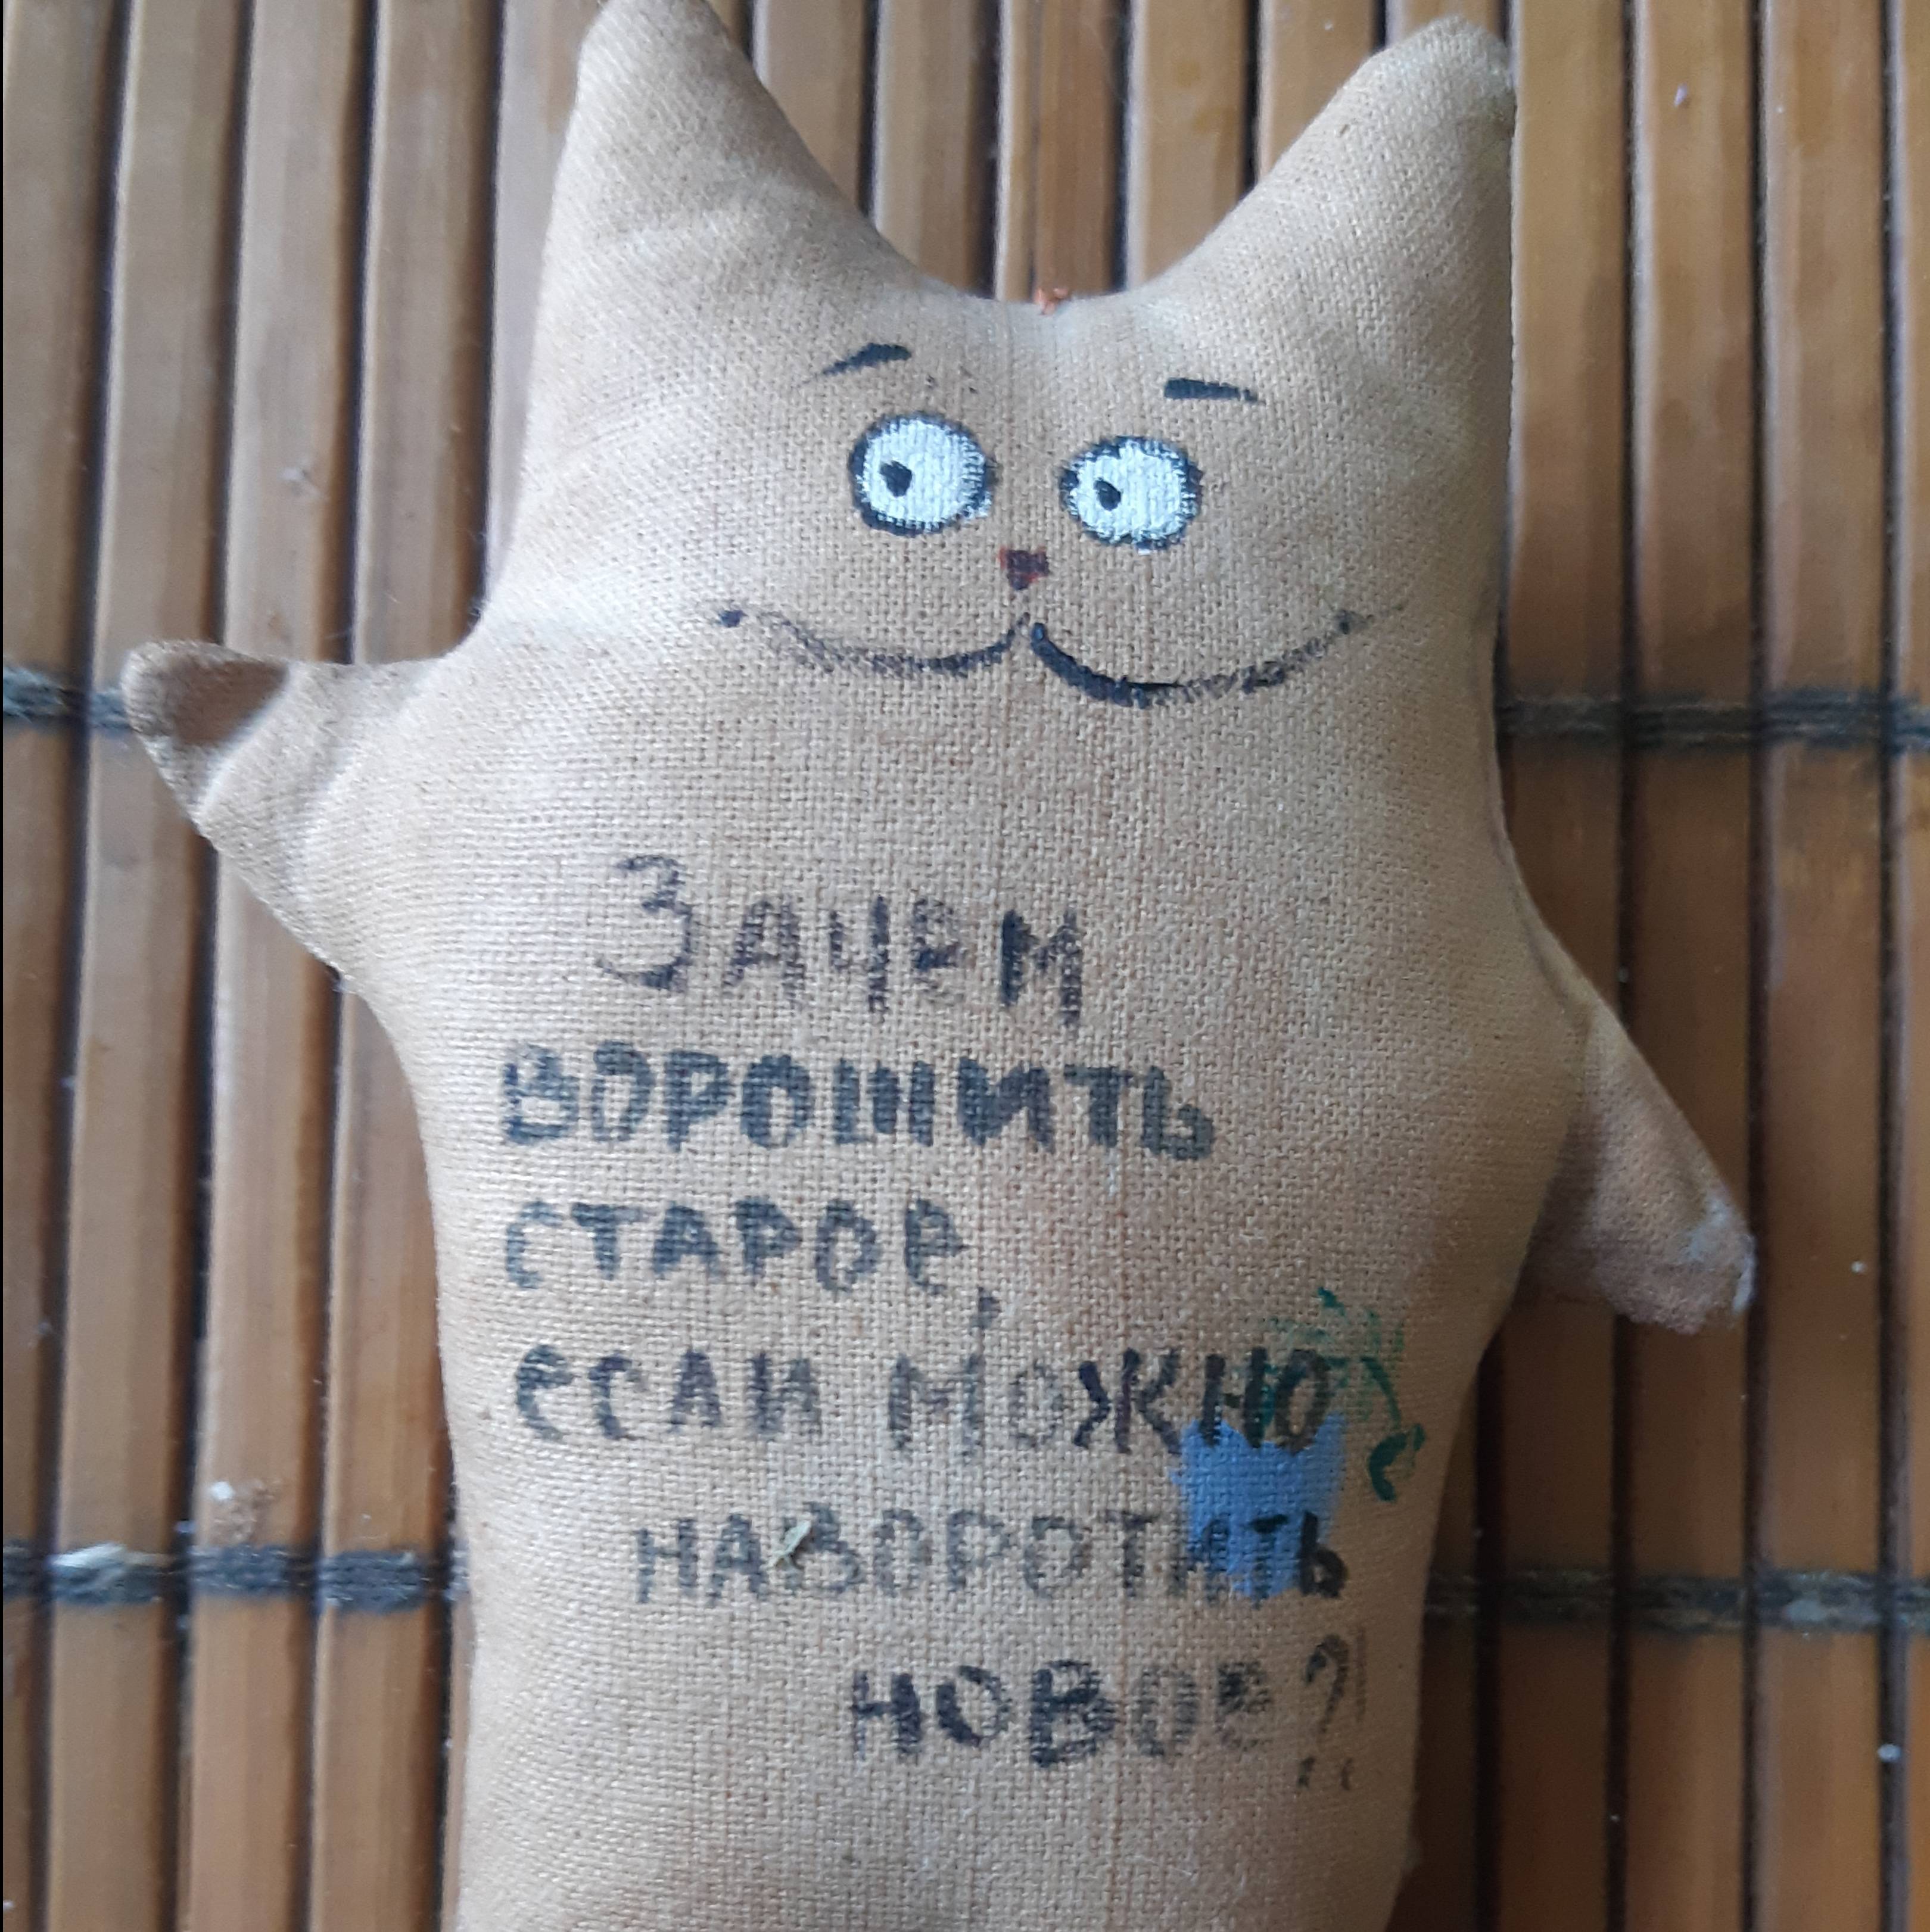 Зачем
ворошить
старое,
если можно
наворотить
новое?!